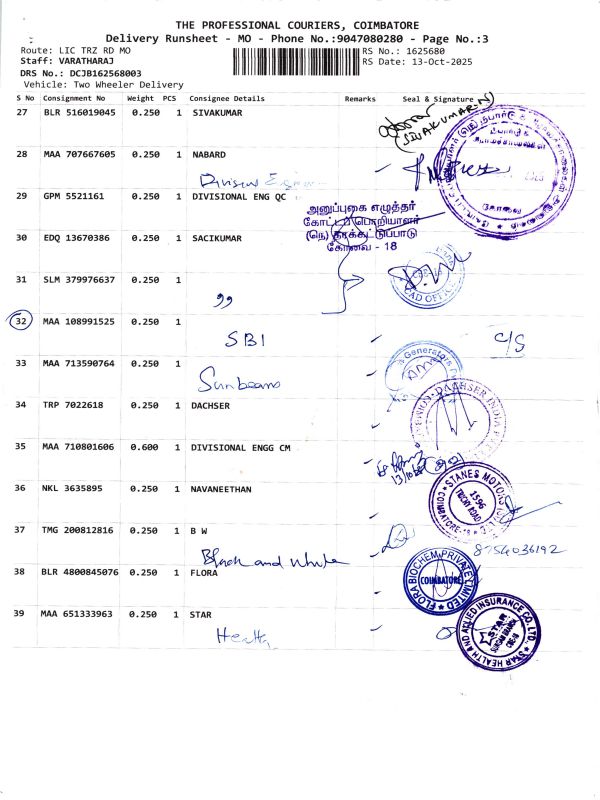 THE PROFESSIONAL COURIERS, COIMBATORE
Delivery Runsheet - MO - Phone No.:9047080280 - Page No.:3
Route: LIC TRZ RD MO RS No.: 1625680
Staff: VARATHARAJ RS Date: 13-Oct-2025
DRS No.: DCJB162568003
Vehicle: Two Wheeler Delivery
S No Consignment No Weight PCS Consignee Details Remarks Seal & Signature
27 BLR 516019045 0.250 1 SIVAKUMAR
(SIVAKUMAR.N)
28 MAA 707667605 0.250 1 NABARD
Divisional
29 GPM 5521161 0.250 1 DIVISIONAL ENG QC
அனுப்புகை எழுத்தர்
கோட்டப் பொறியாளர்
(நெ) தரக்கட்டுப்பாடு
கோவை - 18
கோவை
30 EDQ 13670386 0.250 1 SACIKUMAR
31 SLM 379976637 0.250 1
"
32 MAA 108991525 0.250 1
SBI C/S
33 MAA 713590764 0.250 1
Sunbeams
Generators
34 TRP 7022618 0.250 1 DACHSER
DACHSER INDIA
35 MAA 710801606 0.600 1 DIVISIONAL ENGG CM
36 NKL 3635895 0.250 1 NAVANEETHAN
STANES MOTORS
1596
TRICHY ROAD
COIMBATORE-18
37 TMG 200812816 0.250 1 B W
Black and white 8754036192
38 BLR 4800845076 0.250 1 FLORA
FLORA BIOCHEM PRIVATE LIMITED
COIMBATORE
39 MAA 651333963 0.250 1 STAR
Health
STAR HEALTH AND ALLIED INSURANCE CO. LTD.
STAR